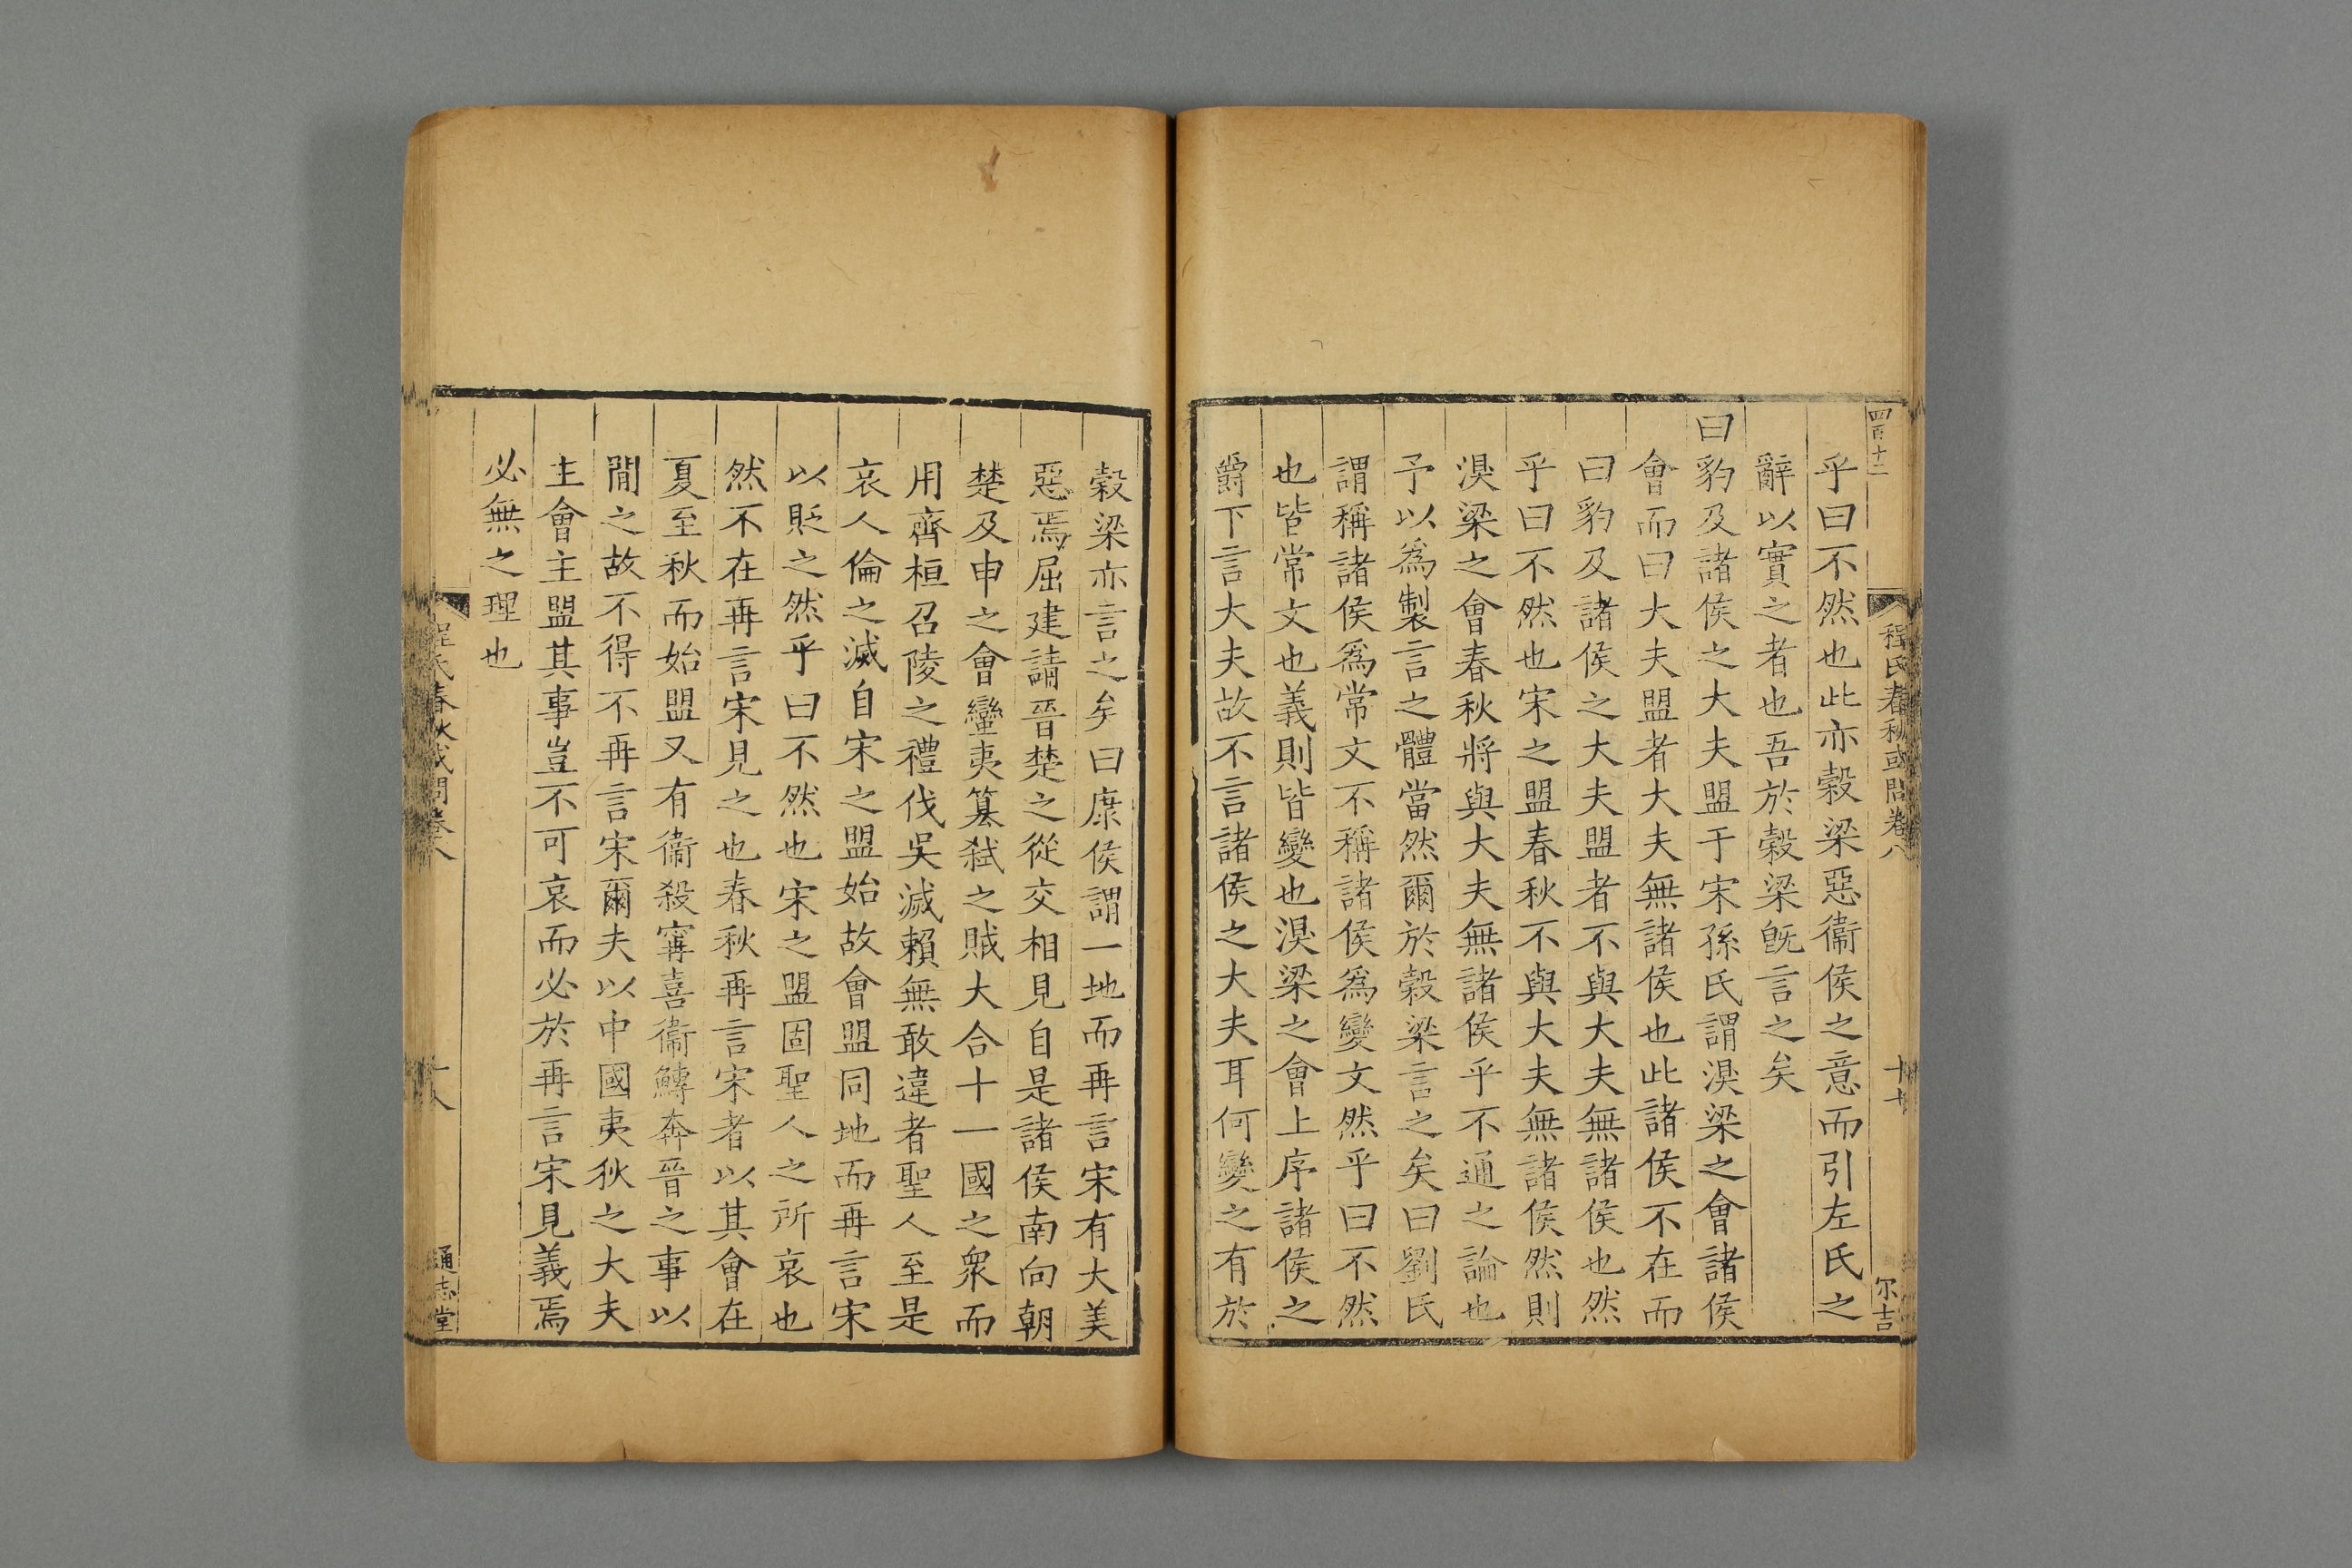 四百十二
程氏春秋或問卷八
十七
尔吉
乎曰不然也此亦穀梁惡衞侯之意而引左氏之
辭以實之者也吾於穀梁旣言之矣
曰豹及諸侯之大夫盟于宋孫氏謂湨梁之會諸侯
會而曰大夫盟者大夫無諸侯也此諸侯不在而
曰豹及諸侯之大夫盟者不與大夫無諸侯也然
乎曰不然也宋之盟春秋不與大夫無諸侯然則
湨梁之會春秋將與大夫無諸侯乎不通之論也
予以爲製言之體當然爾於穀梁言之矣曰劉氏
謂稱諸侯爲常文不稱諸侯爲變文然乎曰不然
也皆常文也義則皆變也湨梁之會上序諸侯之
爵下言大夫故不言諸侯之大夫耳何變之有於
穀梁亦言之矣曰康侯謂一地而再言宋有大美
惡焉屈建請晉楚之從交相見自是諸侯南向朝
楚及申之會蠻夷篡弒之賊大合十一國之衆而
用齊桓召陵之禮伐吳滅賴無敢違者聖人至是
哀人倫之滅自宋之盟始故會盟同地而再言宋
以貶之然乎曰不然也宋之盟固聖人之所哀也
然不在再言宋見之也春秋再言宋者以其會在
夏至秋而始盟又有衞殺甯喜衞鱄奔晉之事以
間之故不得不再言宋爾夫以中國夷狄之大夫
主會主盟其事豈不可哀而必於再言宋見義焉
必無之理也
程氏春秋或問卷八
十八
通志堂